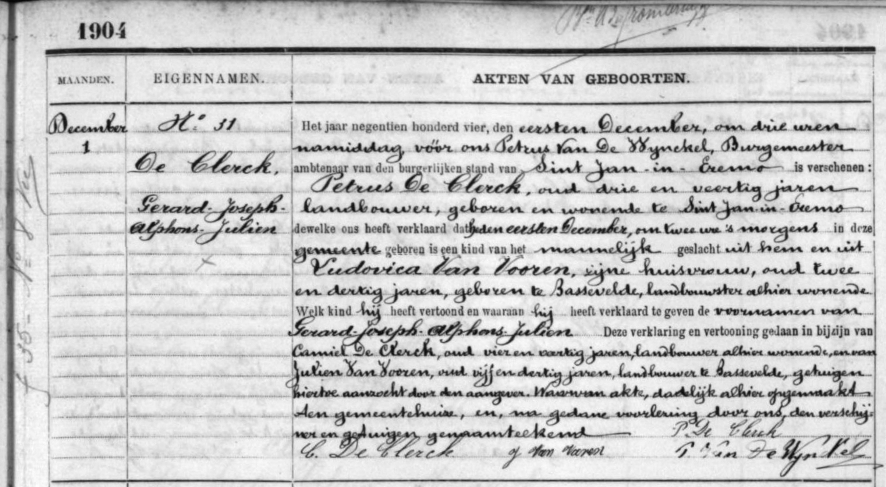 1904
MAANDEN.
EIGENNAMEN.
AKTEN VAN GEBOORTEN.
December
1
No. 31
De Clerck,
Gerard-Joseph-
Alphons-Julien
Het jaar negentien honderd vier, den eersten December, om drie uren
namiddag, vóór ons Petrus Van De Wynckel, Burgemeester
ambtenaar van den burgerlijken stand van Sint Jan-in-Eremo is verschenen:
Petrus De Clerck, oud drie en veertig jaren
landbouwer, geboren en wonende te Sint Jan-in-Eremo
dewelke ons heeft verklaard dat heden eersten December, om twee ure 's morgens in deze
gemeente geboren is een kind van het mannelijk geslacht uit hem en uit
Ludovica Van Vooren, zijne huisvrouw, oud twee
en dertig jaren, geboren te Bassevelde, landbouwster alhier wonende
Welk kind hij heeft vertoond en waaraan hij heeft verklaard te geven de voornamen van
Gerard-Joseph-Alphons-Julien Deze verklaring en vertooning gedaan in bijzijn van
Camiel De Clerck, oud vier en jaren, landbouwer alhier wonende, en van
Julien Van Vooren, oud vijf en dertig jaren, landbouwer te Bassevelde, getuigen
hiertoe aanzocht door den aangever. Waarvan akte, dadelijk alhier opgemaakt
ten gemeentehuize, en, na gedane voorlezing door ons, den verschij-
ner en getuigen genaamteekend P. De Clerck
C. De Clerck J Van Vooren P. Van De Wynckel